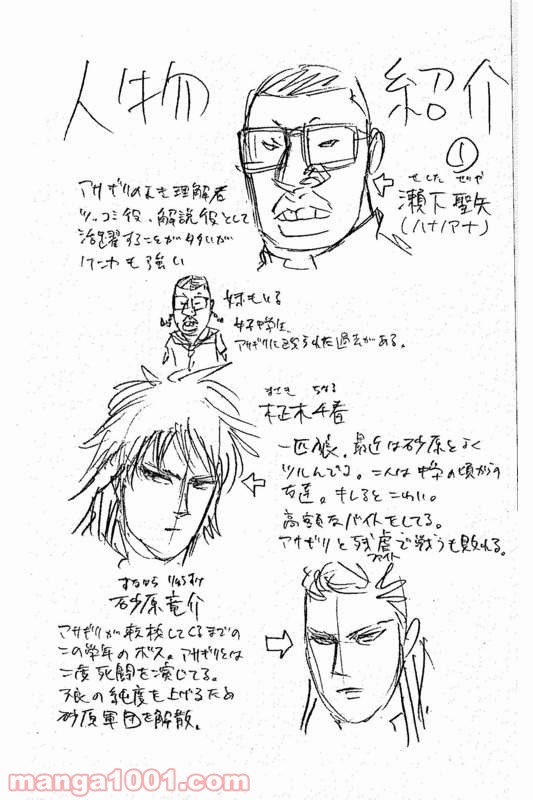 人物紹介
①
せした せいや
瀬下聖矢
(ハナノアナ)
アサギリの良き理解者
ツッコミ役、解説役として
活躍することが多いが
ケンカも強い
妹もいる
女子中学生、
アサギリに殴られた過去がある。
まさき ちはる
柾木千春
一匹狼、最近は砂原とよく
ツルんでる。二人は中学の頃からの
友達。キレるとこわい。
高額なバイトをしてる。
アサギリと残虐で戦うも敗れる。
ファイト
すなはら りゅうすけ
砂原竜介
アサギリが転校してくるまでの
この学年のボス。アサギリとは
二度死闘を演じてる。
不良の純度を上げるため
砂原軍団を解散。
manga1001.com